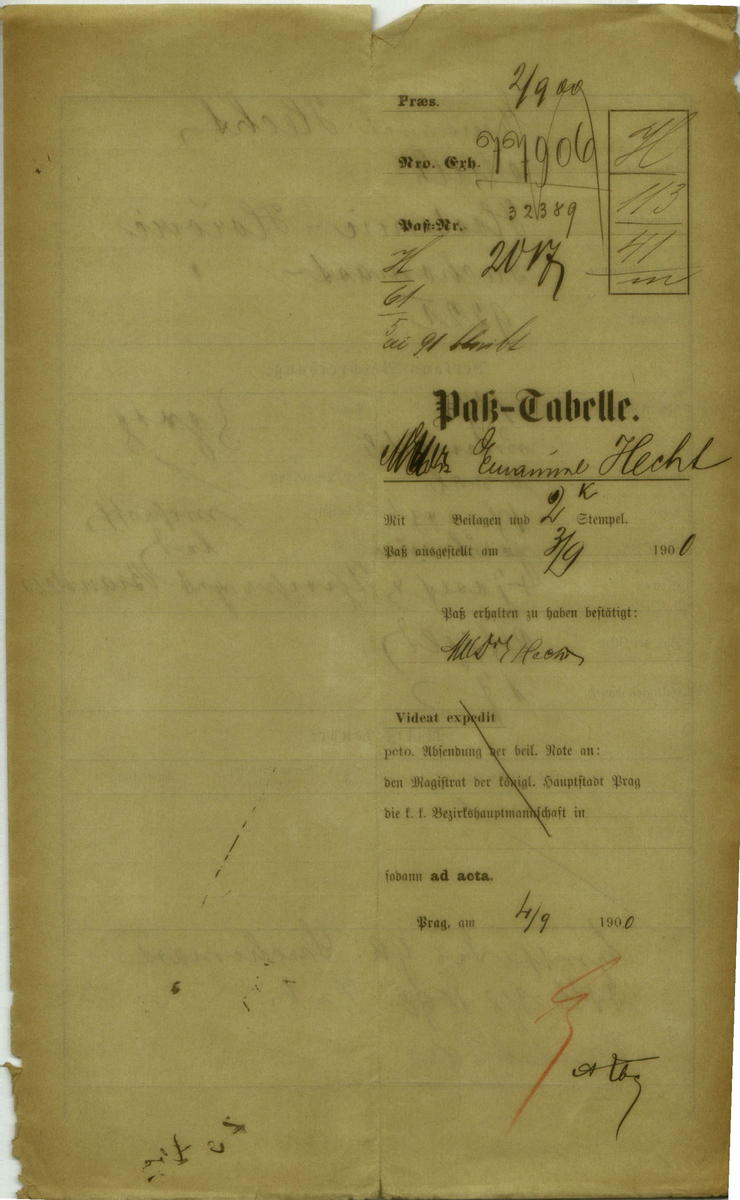 Præs. 2/9 00
Nro. Exh. 77906
H
113
41
m
32389
Paß-Nr. 2017
H
61
91 bleibt
Paß-Tabelle.
Emanuel Hecht
Mit Beilagen und 2 K Stempel.
Paß ausgestellt am 3/9 1900
Paß erhalten zu haben bestätigt:
MUDr Hecht
Videat expedit
pcto. Absendung der beil. Note an:
den Magistrat der königl. Hauptstadt Prag
die k. k. Bezirkshauptmannschaft in
sodann ad acta.
Prag, am 4/9 1900